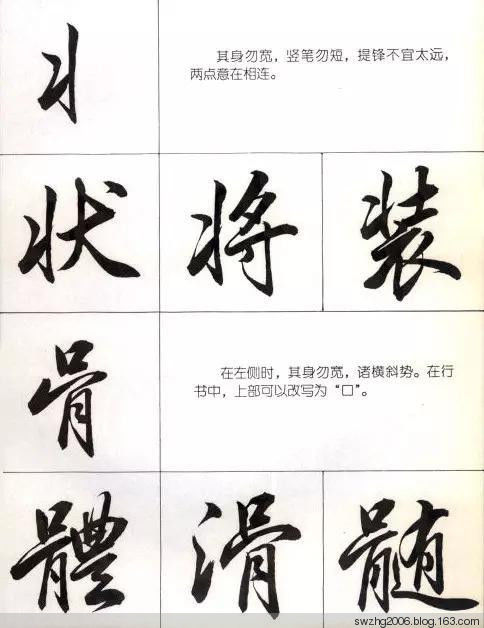 丬
其身勿宽，竖笔勿短，提锋不宜太远，
两点意在相连。
状 将 装
骨
在左侧时，其身勿宽，诸横斜势。在行
书中，上部可以改写为“口”。
體 滑 髓
swzhg2006.blog.163.com